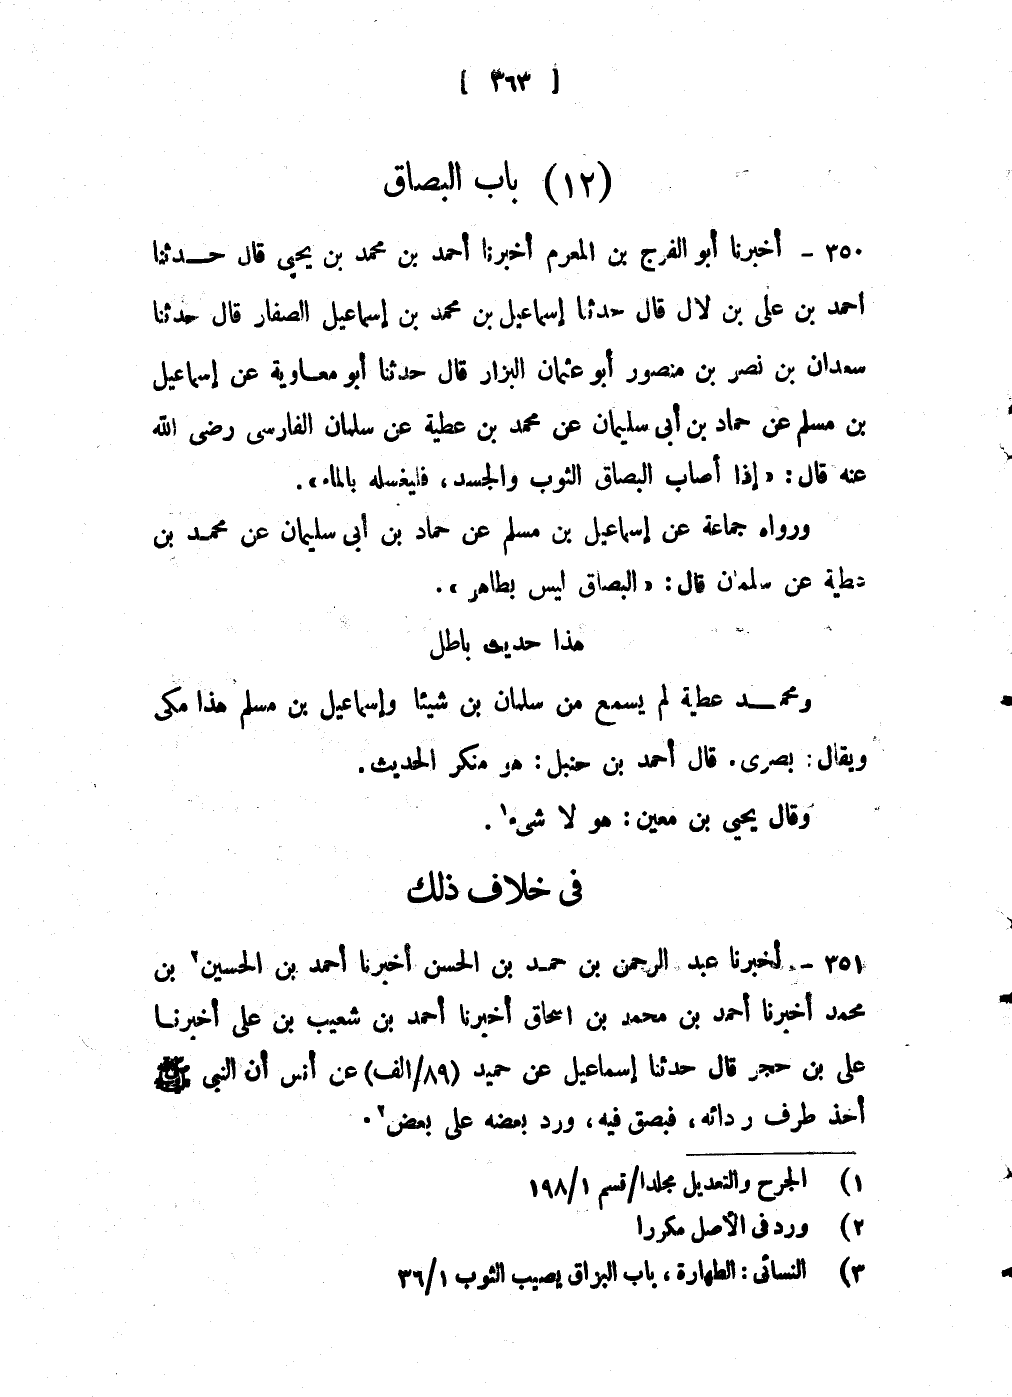 [ ٣٦٣ ]
(١٢) باب البصاق
٣٥٠ - أخبرنا أبو الفرج بن المعرم أخبرنا أحمد بن محمد بن يحيى قال حـــدثنا
احمد بن على بن لال قال حدثنا إسماعيل بن محمد بن إسماعيل الصفار قال حدثنا
سعدان بن نصر بن منصور أبو عثمان البزار قال حدثنا أبو معــاوية عن إسماعيل
بن مسلم عن حماد بن أبى سليمان عن محمد بن عطية عن سلمان الفارسى رضى الله
عنه قال: « إذا أصاب البصاق الثوب والجسد، فليغسله بالماء».
ورواه جماعة عن إسماعيل بن مسلم عن حماد بن أبى سليمان عن محمـد بن
عطية عن سلمان قال: « البصاق ليس بطاهر ».
هذا حديث باطل
ومحمـــد عطية لم يسمع من سلمان بن شيئا وإسماعيل بن مسلم هذا مكى
ويقال: بصرى. قال أحمد بن حنبل: هو منكر الحديث.
وقال يحيى بن معين: هو لا شىء١.
فى خلاف ذلك
٣٥١ - أخبرنا عبد الرحمن بن حمـد بن الحسن أخبرنا أحمد بن الحسين٢ بن
محمد أخبرنا أحمد بن محمد بن اسحاق أخبرنا أحمد بن شعيب بن على أخبرنــا
على بن حجر قال حدثنا إسماعيل عن حميد (٨٩/الف) عن أنس أن النبى ﷺ
أخذ طرف ردائه، فبصق فيه، ورد بعضه على بعض٣.
١) الجرح والتعديل مجلد١/قسم ١٩٨/١
٢) ورد فى الأصل مكررا
٣) النسائى: الطهارة، باب البزاق يصيب الثوب ٣٦/١